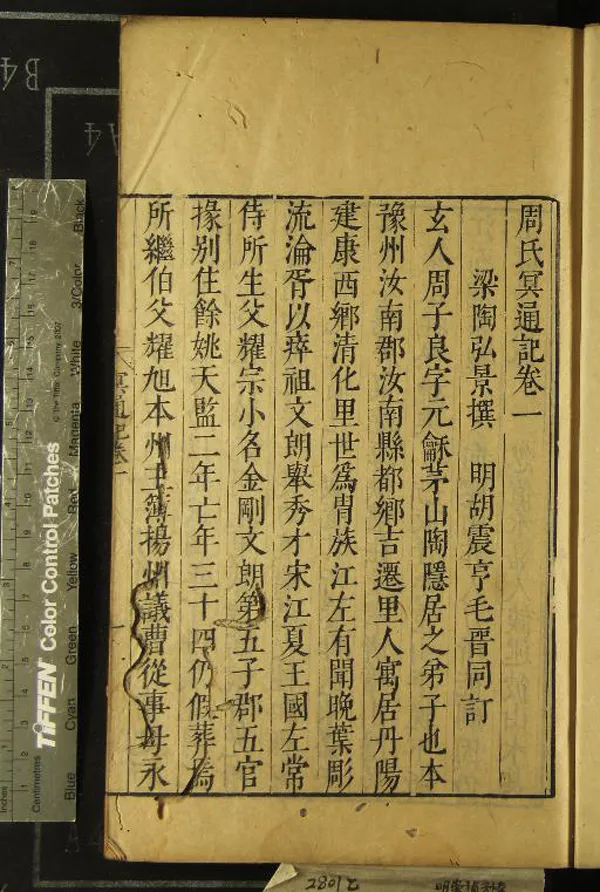 周氏冥通記卷一
梁陶弘景撰 明胡震亨毛晋同訂
玄人周子良字元龢茅山陶隱居之弟子也本
豫州汝南郡汝南縣都鄉吉遷里人寓居丹陽
建康西鄉清化里世爲冑族江左有聞晚葉彫
流淪胥以瘁祖文朗舉秀才宋江夏王國左常
侍所生父耀宗小名金剛文朗第五子郡五官
掾別住餘姚天監二年亡年三十四仍假葬焉
所繼伯父耀旭本州主簿揚州議曹從事母永
冥通記卷一
一
B4
A4
Inches
Centimetres
TIFFEN Color Control Patches
© The Tiffen Company, 2007
Blue Cyan Green Yellow Red Magenta White 3/Color Black
2801